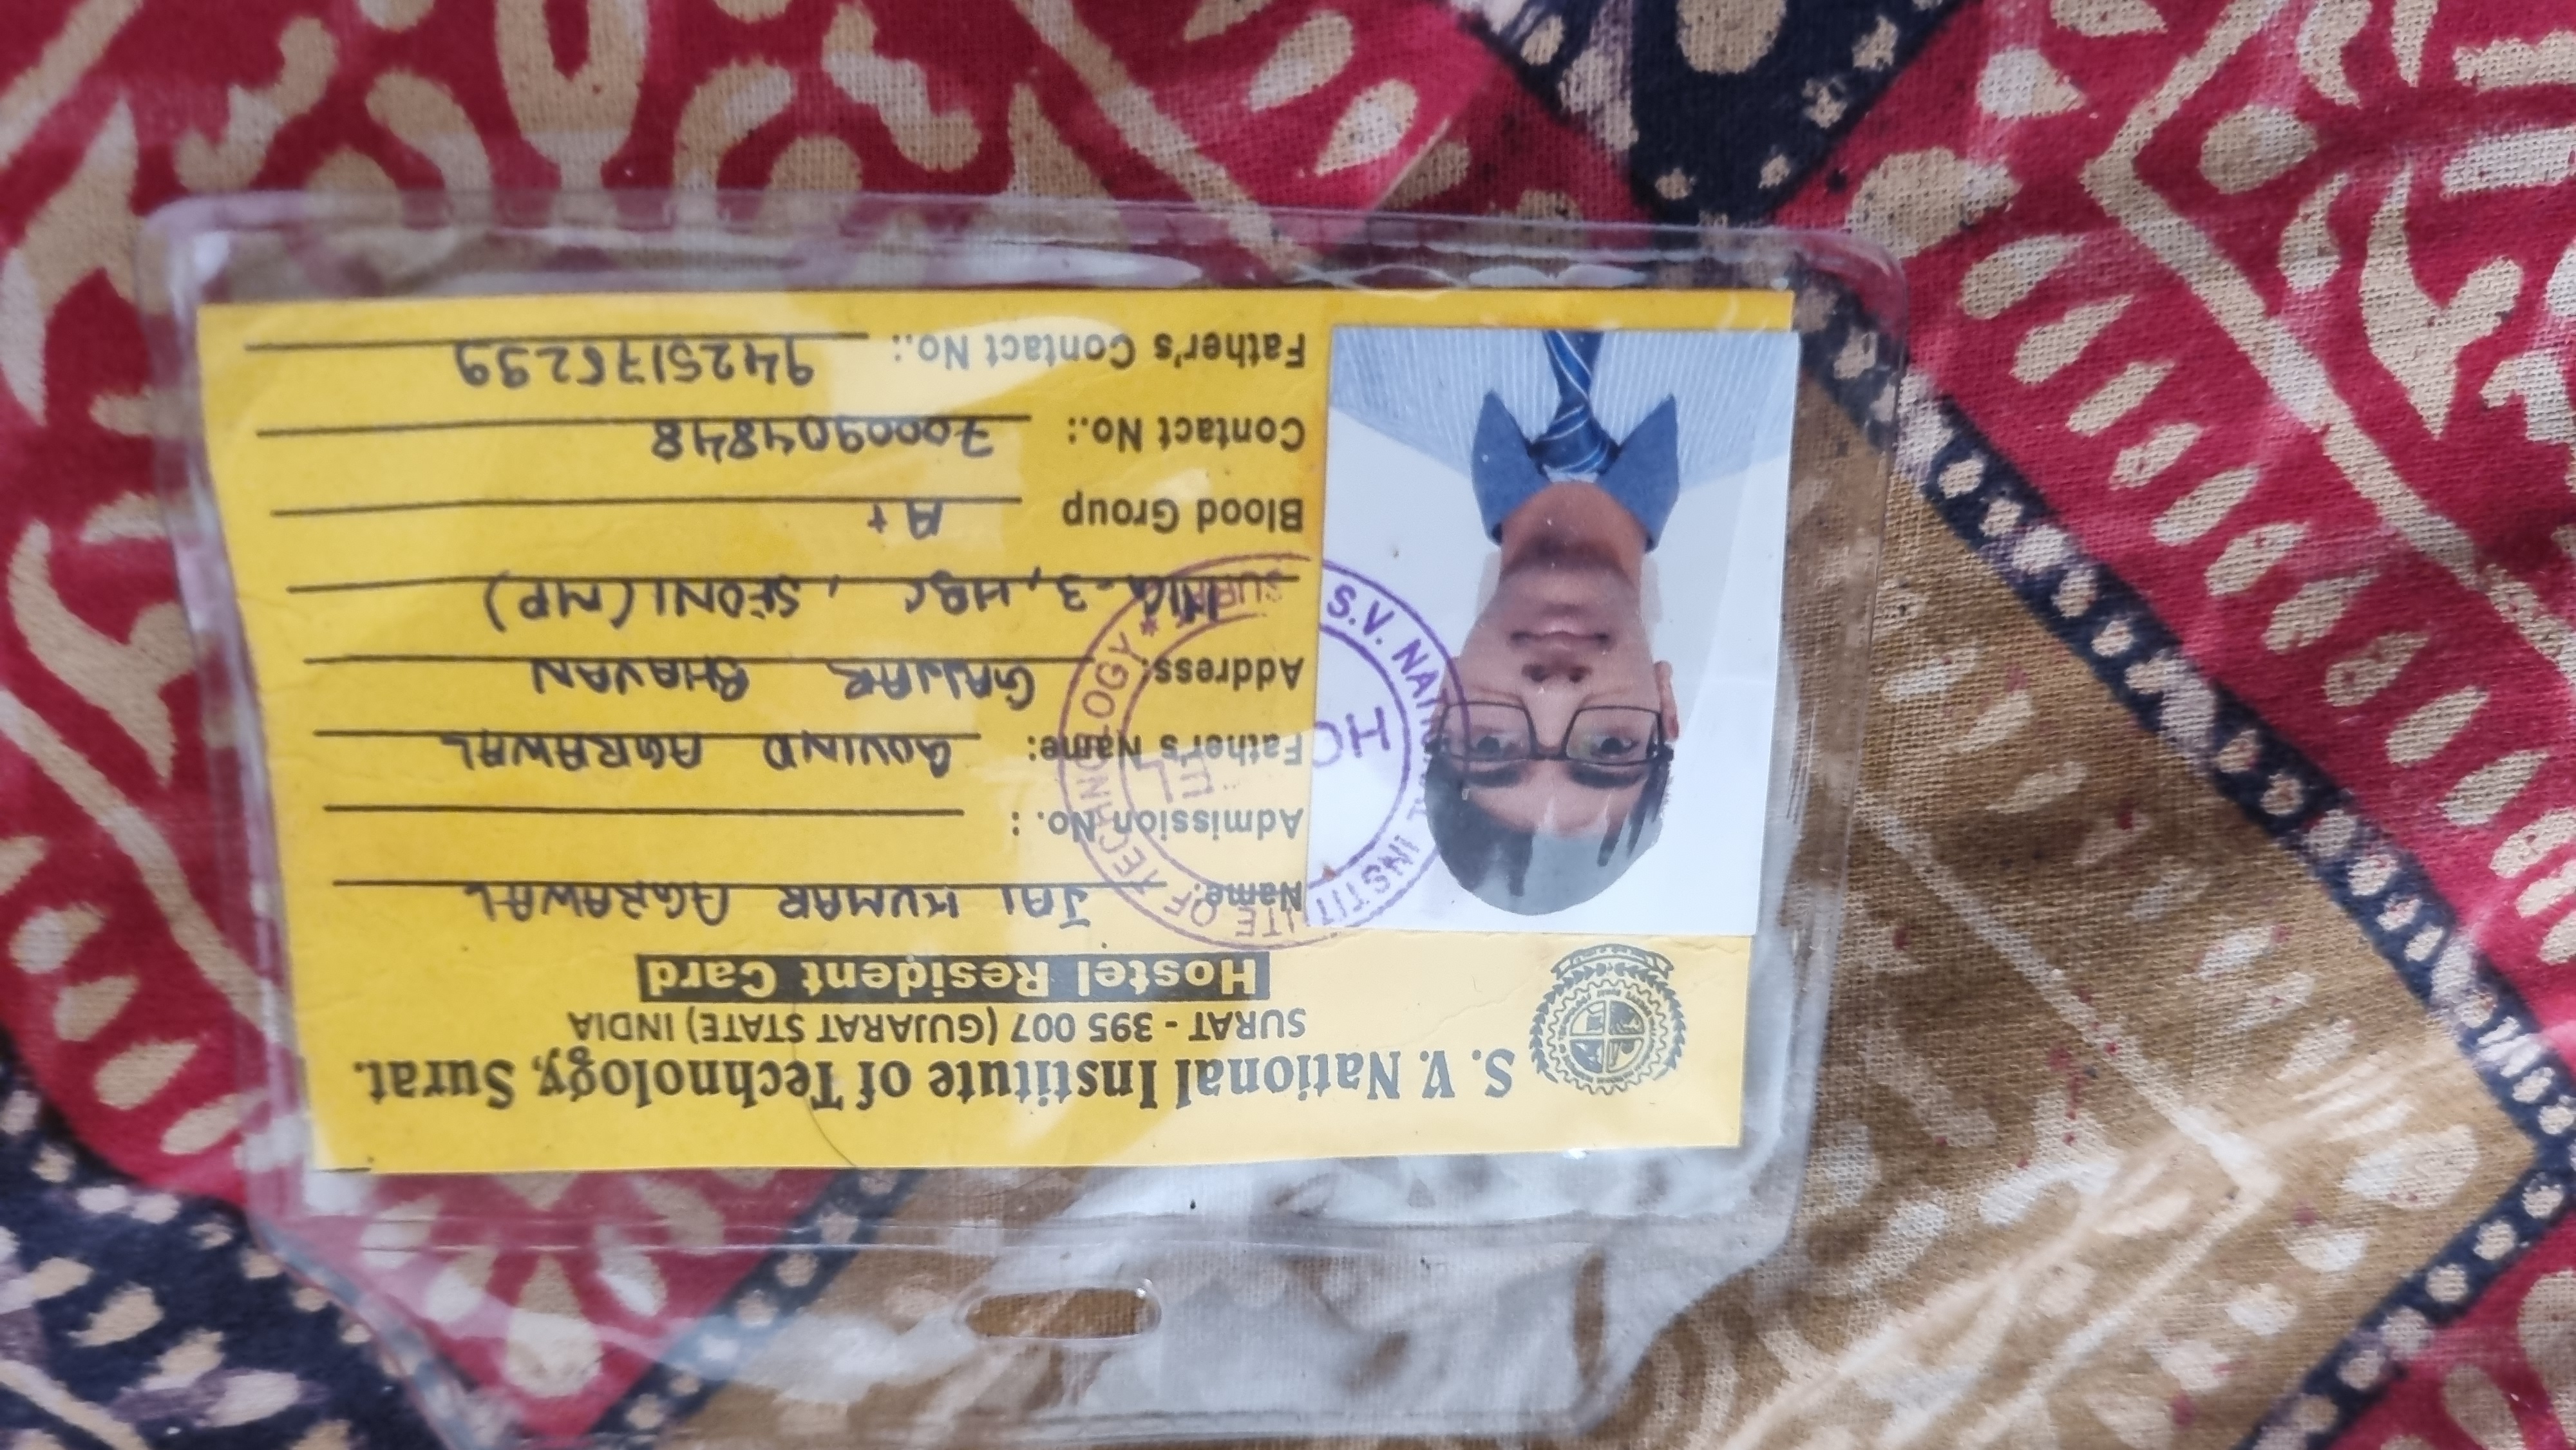 S. V. National Institute of Technology, Surat.
SURAT - 395 007 (GUJARAT STATE) INDIA
Hostel Resident Card
Name: JAI KUMAR AGRAWAL
Admission No. :
Father's Name: GOVIND AGRAWAL
Address: GAJJAR BHAVAN
-3, HBC , SEONI (MP)
Blood Group A+
Contact No.: 7000904848
Father's Contact No.:
S.V. NATIONAL INSTITUTE OF TECHNOLOGY * SURAT
HOSTEL